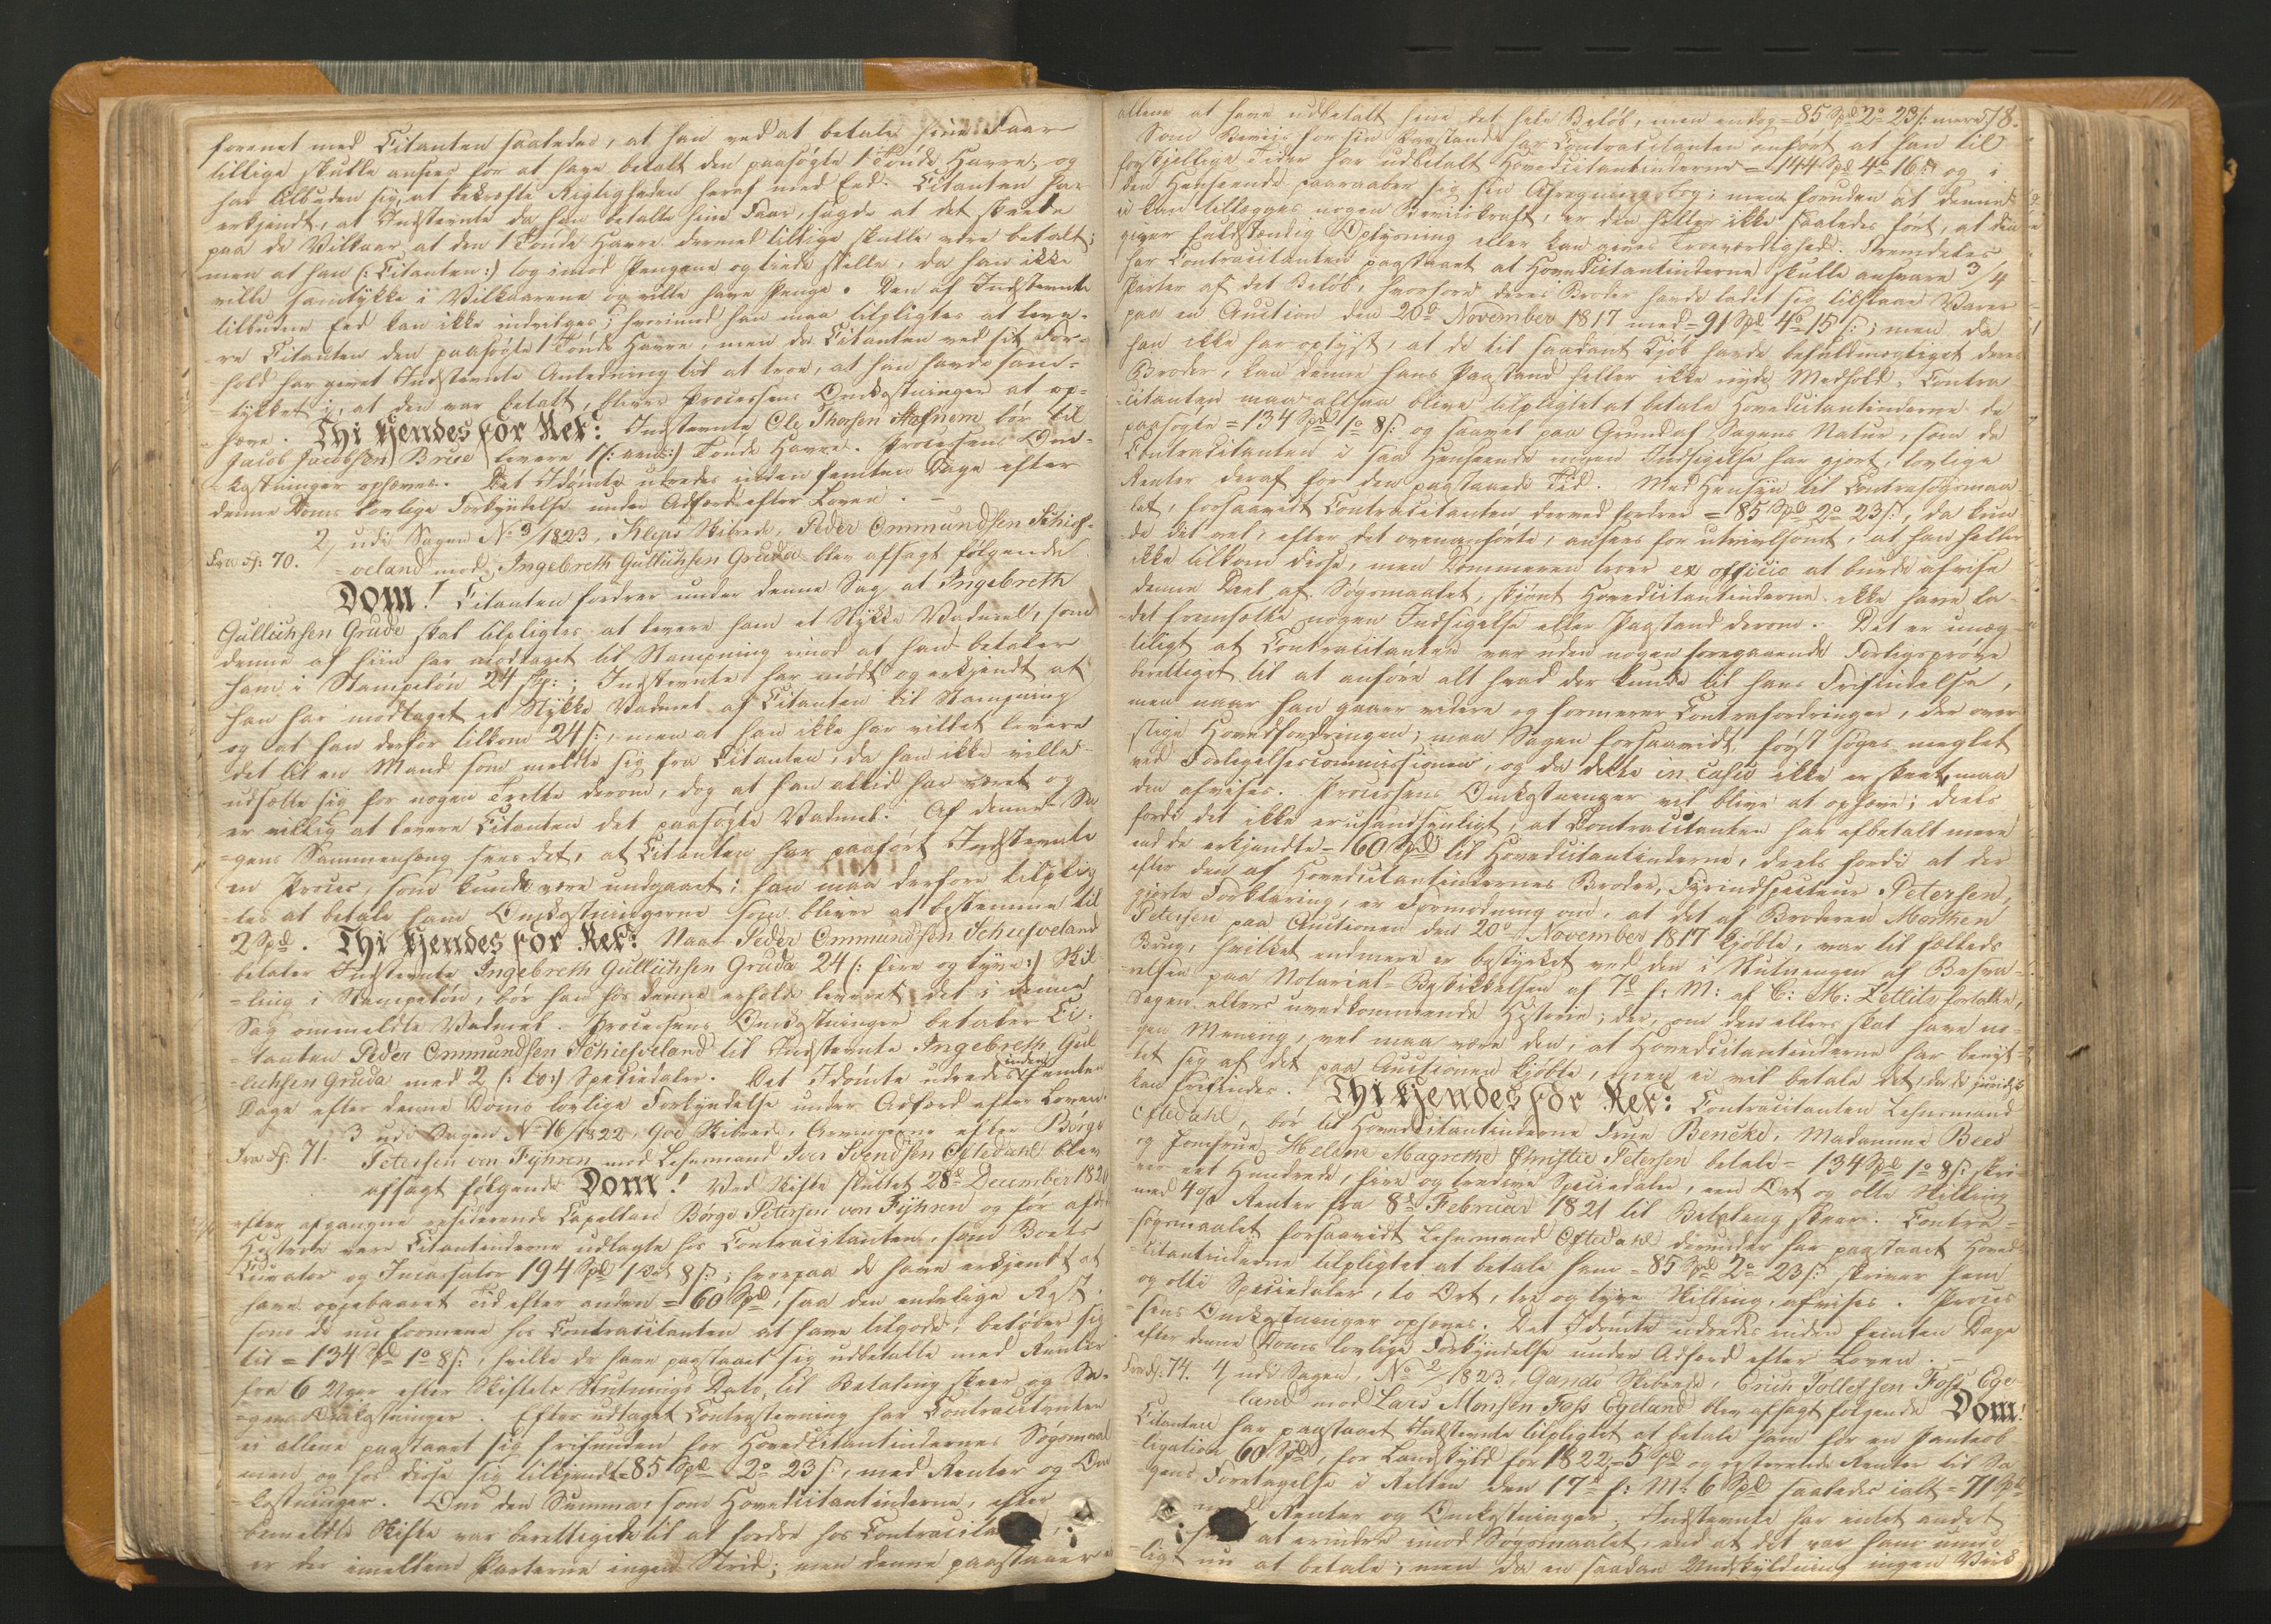 forenet med Citanten saaledes, at han ved at betale sine Faar
tillige skulle ansees for at have betalt den paasøgte 1 Tønde Havre, og
har tilbuden sig, at bekræfte Rigtigheden heraf med Eed. Citanten har
erkjendt, at Indstevnte da han betalte sine Faar, sagde at det skeede
paa de Vilkaar at den 1 Tønde Havre dermed tillige skulle være betalt;
men at han (: Citanten :) tog imod Pengene og taug stille, da han ikke
ville samtykke i Vilkaarene og ville have Penge. Den af Indstevnte
tilbudne Eed kan ikke indvilges; hvorimod han maa tilpligtes at leve-
re Citanten den paasøgte 1 Tønde Havre, men da Citanten ved sit For-
hold har givet Indstevnte Anledning til at troe, at han havde sam-
tykket i, at den var betalt, bliver Processens Omkostninger at op-
hæve. Thi kjendes for Ret: Indstevnte Ole Thorsen bør til
Jacob Jacobsen Brue levere 1 (: een :) Tønde Havre. Processens Om-
kostninger ophæves. Det Idømte udredes inden femten Dage efter
denne Doms lovlige Forkyndelse under Adfærd efter Loven. –
2, udi Sagen No 3/1823, Kleps Skibrede, Peder Ommundsen Schies-
Fra S: 70. =veland mod Ingebreth Gulliehsen Gruda blev afsagt følgende
Dom! Citanten fordrer under denne Sag at Ingebreth
Gulliehsen Grude skal tilpligtes at levere ham et Stykke Vadmel, som
denne af hiin har modtaget til Stampning imod at han betaler
ham i Stampeløn 24 s:; Indstevnte har mødt og erkjendt at
han har modtaget et Stykke Vadmel af Citanten til Stampning
og at han derfor tilkom 24 s:, men at han ikke har villet levere
det til en Mand som meldte sig fra Citanten, da han ikke ville
udsætte sig for nogen Trætte derom, dog at han altid har været og
er villig at levere Citanten det paasøgte Vadmel. Af denne Sa
=gens Sammenhæng sees det, at Citanten har paaført Indstevnte
en Proces, som kunde være undgaaet; han maa derfore tilplig
=tes at betale ham Omkostningerne som bliver at bestemme til
2 Spd. Thi kjendes for Ret: Naar Peder Ommundsen Schiesveland
betaler Indstevnte Ingebreth Gulliehsen Gruda 24 (: fire og tyve :) Skil-
=ling i Stampeløn, bør han hos denne erholde leveret det i denne
Sag ommeldte Vadmel. Processens Omkostninger betaler Ci-
=tanten Peder Ommundsen Schiesveland til Indstevnte Ingebreth Gul
=liehsen Gruda med 2 (: to :) Speciedaler. Det Idømte udredes inden femten
Dage efter denne Doms lovlige Forkyndelse under Adfærd efter Loven.
3 udi Sagen No 16/1822, Goe Skibrede, Arvingerne efter Børge
Fra S: 71. Petersen von Fyhren mod Lehnsmand Iver Svendsen Oftedahl blev
afsagt følgende Dom! Ved Skifte sluttet 28de December 1820
efter afgangne residerende Capellan Børge Petersen von Fyhren og før afdøde
Hustrue vare Citantinderne udlagte hos Contracitanten, som Boets
Curator og Incassator 194 Spd 1 Ort 8 s:; hvorpaa de have erkjendt at
have oppebaaret Tid efter anden = 60 Spd, saa den endelige Rest,
som de nu formene hos Contracitanten at have tilgode, beløber sig
til = 134 Spd 1o 8 s:, hvilke de have paastaaet sig udbetalte med Renter
fra 6 Uger efter Skiftets Slutnings Dato, til Betaling skeer og Sa-
=gens Omkostninger. Efter udtaget Contrastevning har Contracitanten
ei allene paastaaet sig frifunden for Hovedcitantindernes Søgsmaal
men og hos disse sig tilkjendt = 85 Spd 2o 23 s:, med Renter og Om
=kostninger. Om den Summa, som Hovedcitantinderne, efter
bemeldte Skifte var berettigede til at fordre hos Contracita
er der imellem Parterne ingen Strid; men denne paastaaer
allene at have udbetalt hine det hele Beløb, men endog = 85 Spd 2o 23 s: mere 78.
Som Beviis for sin Paastand har Contracitanten anført at han til
forskjellige Tider har udbetalt Hovedcitantinderne = 144 Spd 4o 16 s: og i
den Henseende paaraaber sig sin Afregningsbog; men foruden at denne
ei kan tillægges nogen Beviiskraft, er den heller ikke saaledes ført, at den
giver fuldstændig Oplysning eller kan gives Troeværdighed. Fremdeles
har Contracitanten paastaaet at Hovedcitantinderne skulle ansvare 3/4
Parter af det Beløb, hvorfore deres Broder havde ladet sig tilslaae Varer
paa en Auction den 20de November 1817 med = 91 Spd 4o 15 s:; men da
han ikke har oplyst, at de til saadant Kjøb havde befuldmægtiget deres
Broder, kan denne hans Paastand heller ikke nyde Medhold. Contra
=citanten maa altsaa blive tilpligtet at betale Hovedcitantinderne de
paasøgte = 134 Spd 1o 8 s: og saavel paa Grund af Sagens Natur, som da
Contracitanten i saa Henseende ingen Indsigelse har gjort, lovlige
Renter deraf for den paastaaede Tid. Med Hensyn til Contrasøgsmaa
let, forsaavidt Contracitanten derved fordrer = 85 Spd 2o 23 s:, da kun
de det vel, efter det ovenanførte, ansees for utvivlsomt, at han heller
ikke tilkom disse, men Dommeren troer ex officio at burde afvise
denne Deel af Søgsmaalet, skjønt Hovedcitantinderne ikke have la
=det fremsætte nogen Indsigelse eller Paastand derom. Det er unæg-
=teligt at Contracitanten var uden nogen foregaaende Forligsprøve
berettiget til at anføre alt hvad der kunde til hans Frifindelse,
men naar han gaaer videre og formerer Contrafordringer, der over
stige Hovedfordringen; maa Sagen forsaavidt først søges meglet
ved Forligelsescommissionen, og da dette in casu ikke er skeet, maa
den afvises. Processens Omkostninger vil blive at ophæve; deels
fordi det ikke er usandsynligt, at Contracitanten har afbetalt mere
end de erkjendte = 60 Spd til Hovedcitantinderne, deels fordi at der
efter den af Hovedcitantindernes Broder, Fyrindspecteur Petersen,
gjorte Forklaring, er Formodning om, at det af Broderen Morthen
Petersen paa Auctionen den 20de November 1817 kjøbte, var til fælleds
Brug, hvilket endmere er bestyrket ved den i Slutningen af Besva-
=relsen paa Notarial-Beskikkelsen af 7de f: M: af C: M: Zetlitz fortalte,
Sagen ellers uvedkommende Historie; der, om den ellers skal have no-
=gen Mening, vel maa være den, at Hovedcitantinderne har benyt-
=tet sig af det paa Auctionen kjøbte, men ei vil betale det, da de juridisk
kan frifindes. Thi kjendes for Ret: Contracitanten Lehnsmand
Oftedahl, bør til Hovedcitantinderne Frue Bencke, Madamme Beed
og Jomfrue Helene Magrethe Christie Petersen betale = 134 Spd 1o 8 s: skri-
ver eet Hundrede, fire og tredive Speciedaler, een Ort og otte Skilling
med 4 % Renter fra 8de Februar 1821 til Betaling skeer. Contra-
=søgsmaalet forsaavidt Lehnsmand Oftedahl derunder har paastaaet Hoved-
=citantinderne tilpligtet at betale ham = 85 Spd 2o 23 s: skriver fem
og otti Speciedaler, to Ort, tre og tyve Skilling, afvises. Proces
=sens Omkostninger ophæves. Det Idømte udredes inden femten Dage
efter denne Doms lovlige Forkyndelse under Adfærd efter Loven. –
Fra S: 74. 4, udi Sagen, No 2/1823, Gande Skibrede, Erich Tollefsen Foss Ege
land mod Lars Monsen Foss Egeland blev afsagt følgende Dom!
Citanten har paastaaet Indstevnte tilpligtet at betale ham for en Panteob
=ligation 60 Spd, for Landskyld for 1822 = 5 Spd og resterende Renter til Sa
=gens Foretagelse i Retten den 17de f: M: 6 Spd saaledes ialt = 71 Spd
Renter og Omkostninger. Indstevnte har intet andet
at erindre imod Søgsmaalet, end at det var ham umu
=ligt nu at betale; men da en saadan Undskyldning ingen Virk